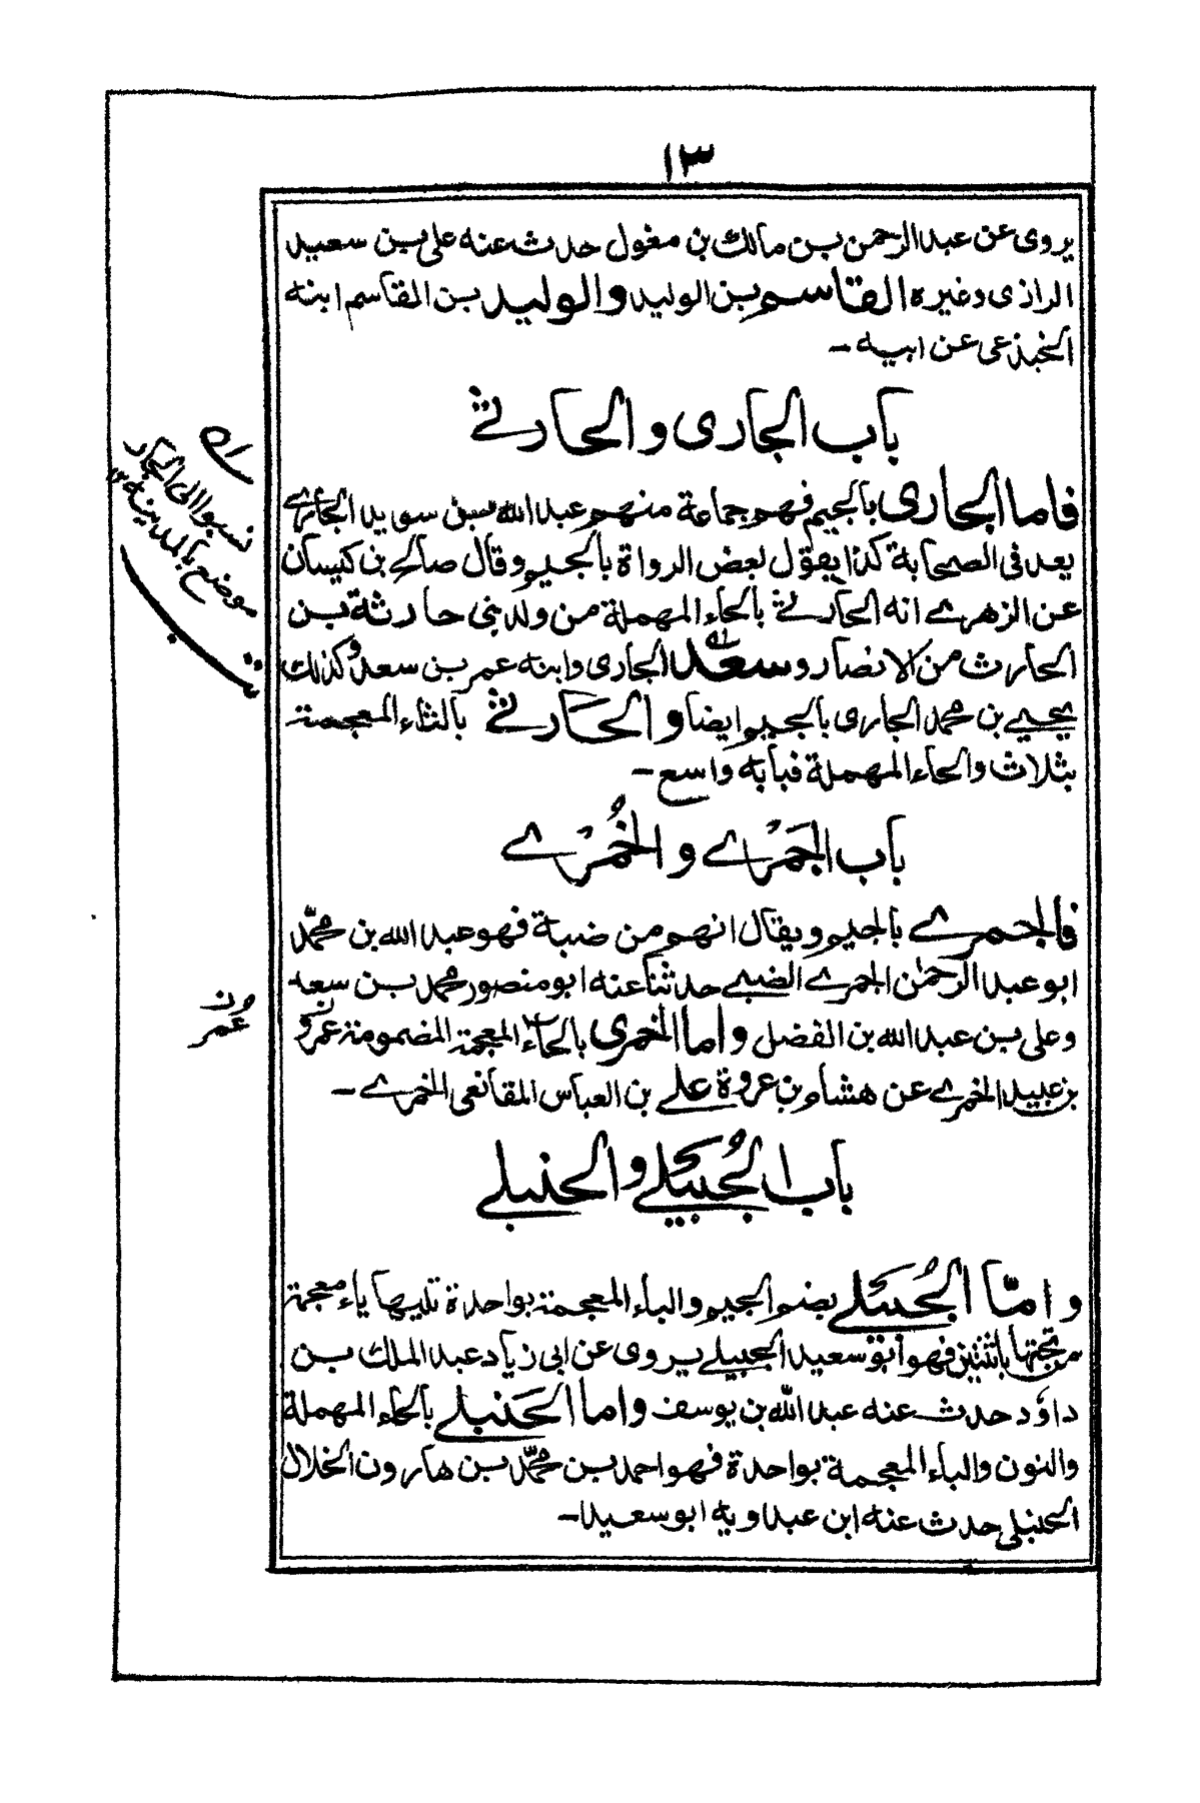 ١٣
يروى عن عبد الرحمن بن مالك بن مغول حدث عنه على بن سعيد
الرازى وغيره القاسم بن الوليد والوليد بن القاسم ابنه
الخبذعى عن ابيه -
باب الجارى والحارثے
فاما الجارى بالجيم فهو جماعة منهم عبد الله بن سويد الجارے
يعد فى الصحابة كذا يقول بعض الرواة بالجيم وقال صالح بن كيسان
عن الزهرے انه الحارثے بالحاء المهملة من ولد بنى حارثة بن
الحارث من الانصار وسعد الجارى وابنه عمر بن سعد وكذلك
يحيے بن محمد الجارى بالجيم ايضا والحارثے بالثاء المعجمة
بثلاث والحاء المهملة فبابه واسع -
باب الجَمْرے والخُمْرے
فالجمرے بالجيم ويقال انهم من ضبة فهو عبد الله بن محمّد
ابو عبد الرحمٰن الجمرے الضبے حدثنا عنه ابو منصور محمد بن سعد
وعلى بن عبد الله بن الفضل واما الخمرى بالخاء المعجمة المضمومة عمرو
بن عبيد الخمرے عن هشام بن عروة علے بن العباس المقانعى الخمرے -
باب الجُبيلے والحنبلے
وامّا الجُبيلے بضم الجيم والباء المعجمة بواحدة تليها ياء معجمة
من تحتها باثنتين فهو ابو سعيد الجبيلے يروى عن ابى زياد عبد الملك بن
داؤد حدث عنه عبد الله بن يوسف واما الحَنبلے بالحاء المهملة
والنون والباء المعجمة بواحدة فهو احمد بن محمّد بن هارون الخلال
الحنبلى حدث عنه ابن عبداويه ابو سعيد -
نسبوا الى الجار
موضع بالمدينة ١٢
ن
عمر